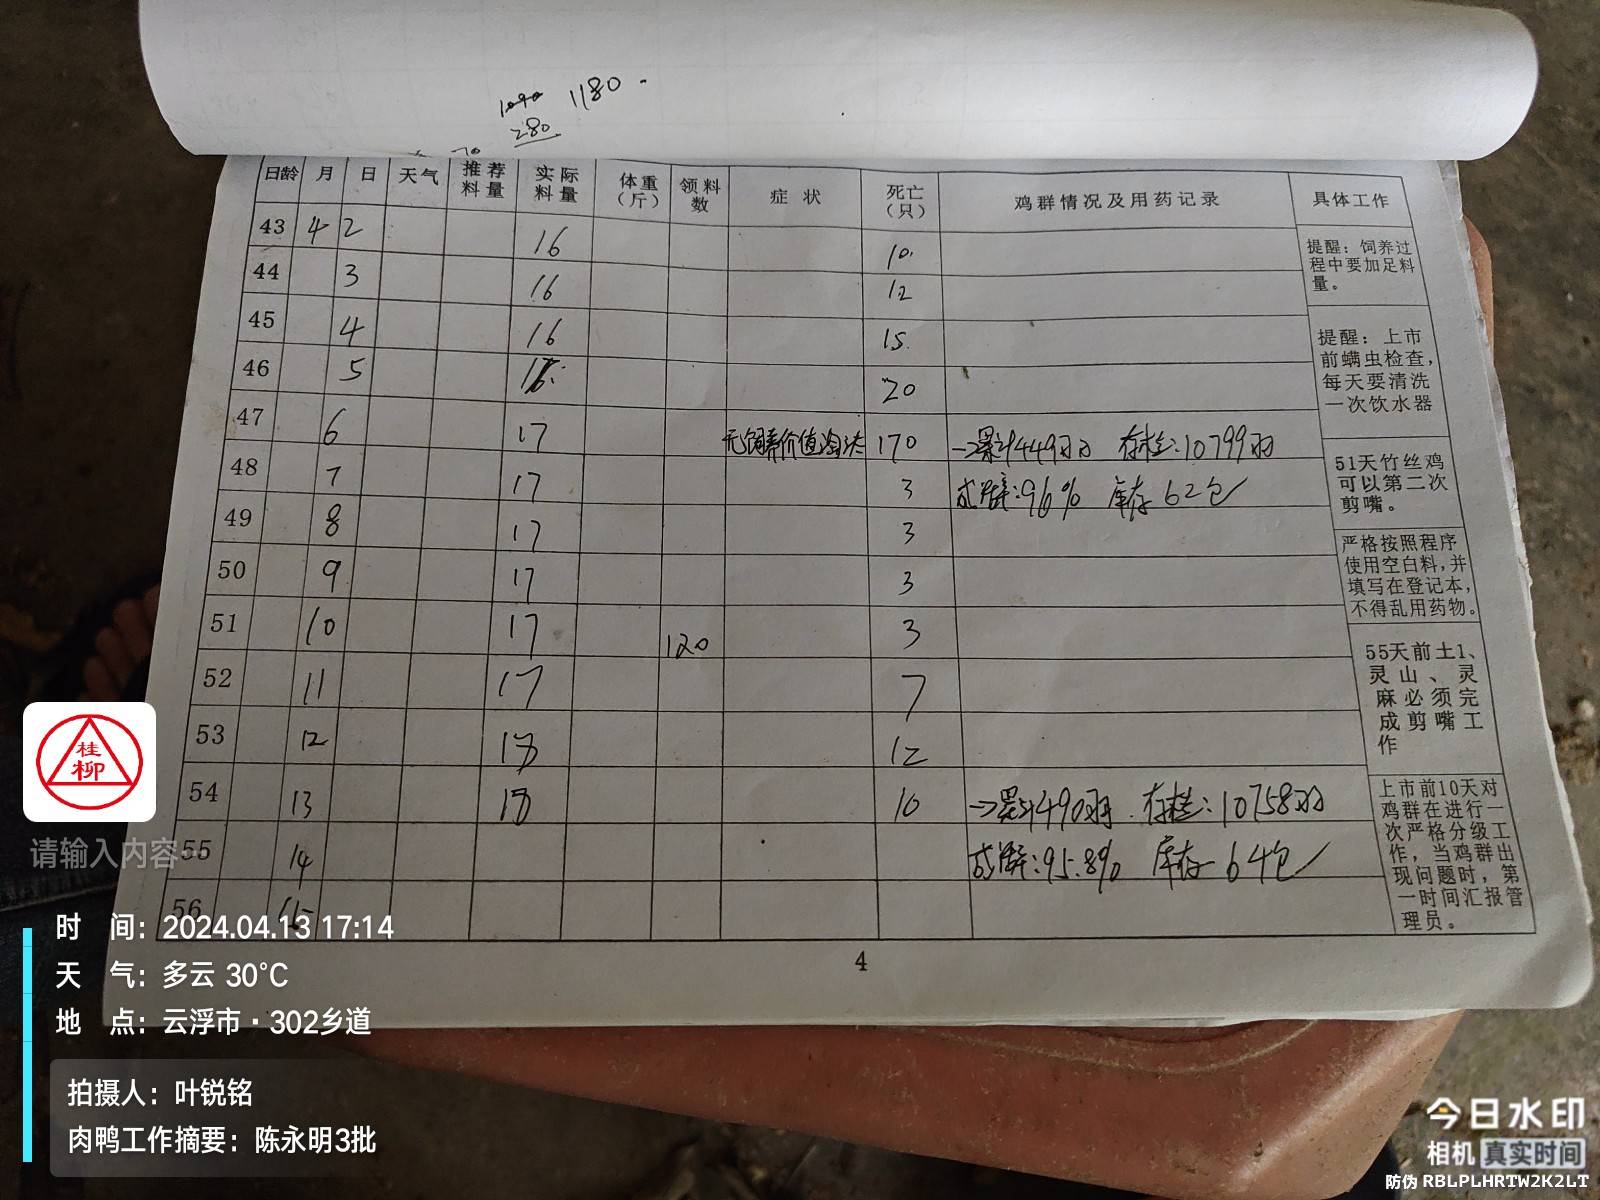 1090 1180
280
70
日龄 月 日 天气 推荐料量 实际料量 体重(斤) 领料数 症状 死亡(只) 鸡群情况及用药记录 具体工作
43 4 2 16 10
44 3 16 12
45 4 16 15
46 5 20
47 6 17 无饲养价值淘汰 170 →累计449羽 存栏:10799羽
48 7 17 3 成活率:96% 库存62包
49 8 17 3
50 9 17 3
51 10 17 120 3
52 11 17 7
53 12 18 12
54 13 18 10 →累计490羽 存栏:10758羽
55 14 成活率:95.8% 库存64包
56 15
提醒:饲养过
程中要加足料
量。
提醒:上市
前螨虫检查,
每天要清洗
一次饮水器
51天竹丝鸡
可以第二次
剪嘴。
严格按照程序
使用空白料,并
填写在登记本,
不得乱用药物。
55天前土1、
灵山、灵
麻必须完
成剪嘴工
作
上市前10天对
鸡群在进行一
次严格分级工
作,当鸡群出
现问题时,第
一时间汇报管
理员。
4
桂
柳
请输入内容
时 间:2024.04.13 17:14
天 气:多云 30°C
地 点:云浮市·302乡道
拍摄人:叶锐铭
肉鸭工作摘要:陈永明3批
今日水印
相机 真实时间
防伪 RBLPLHRTW2K2LT